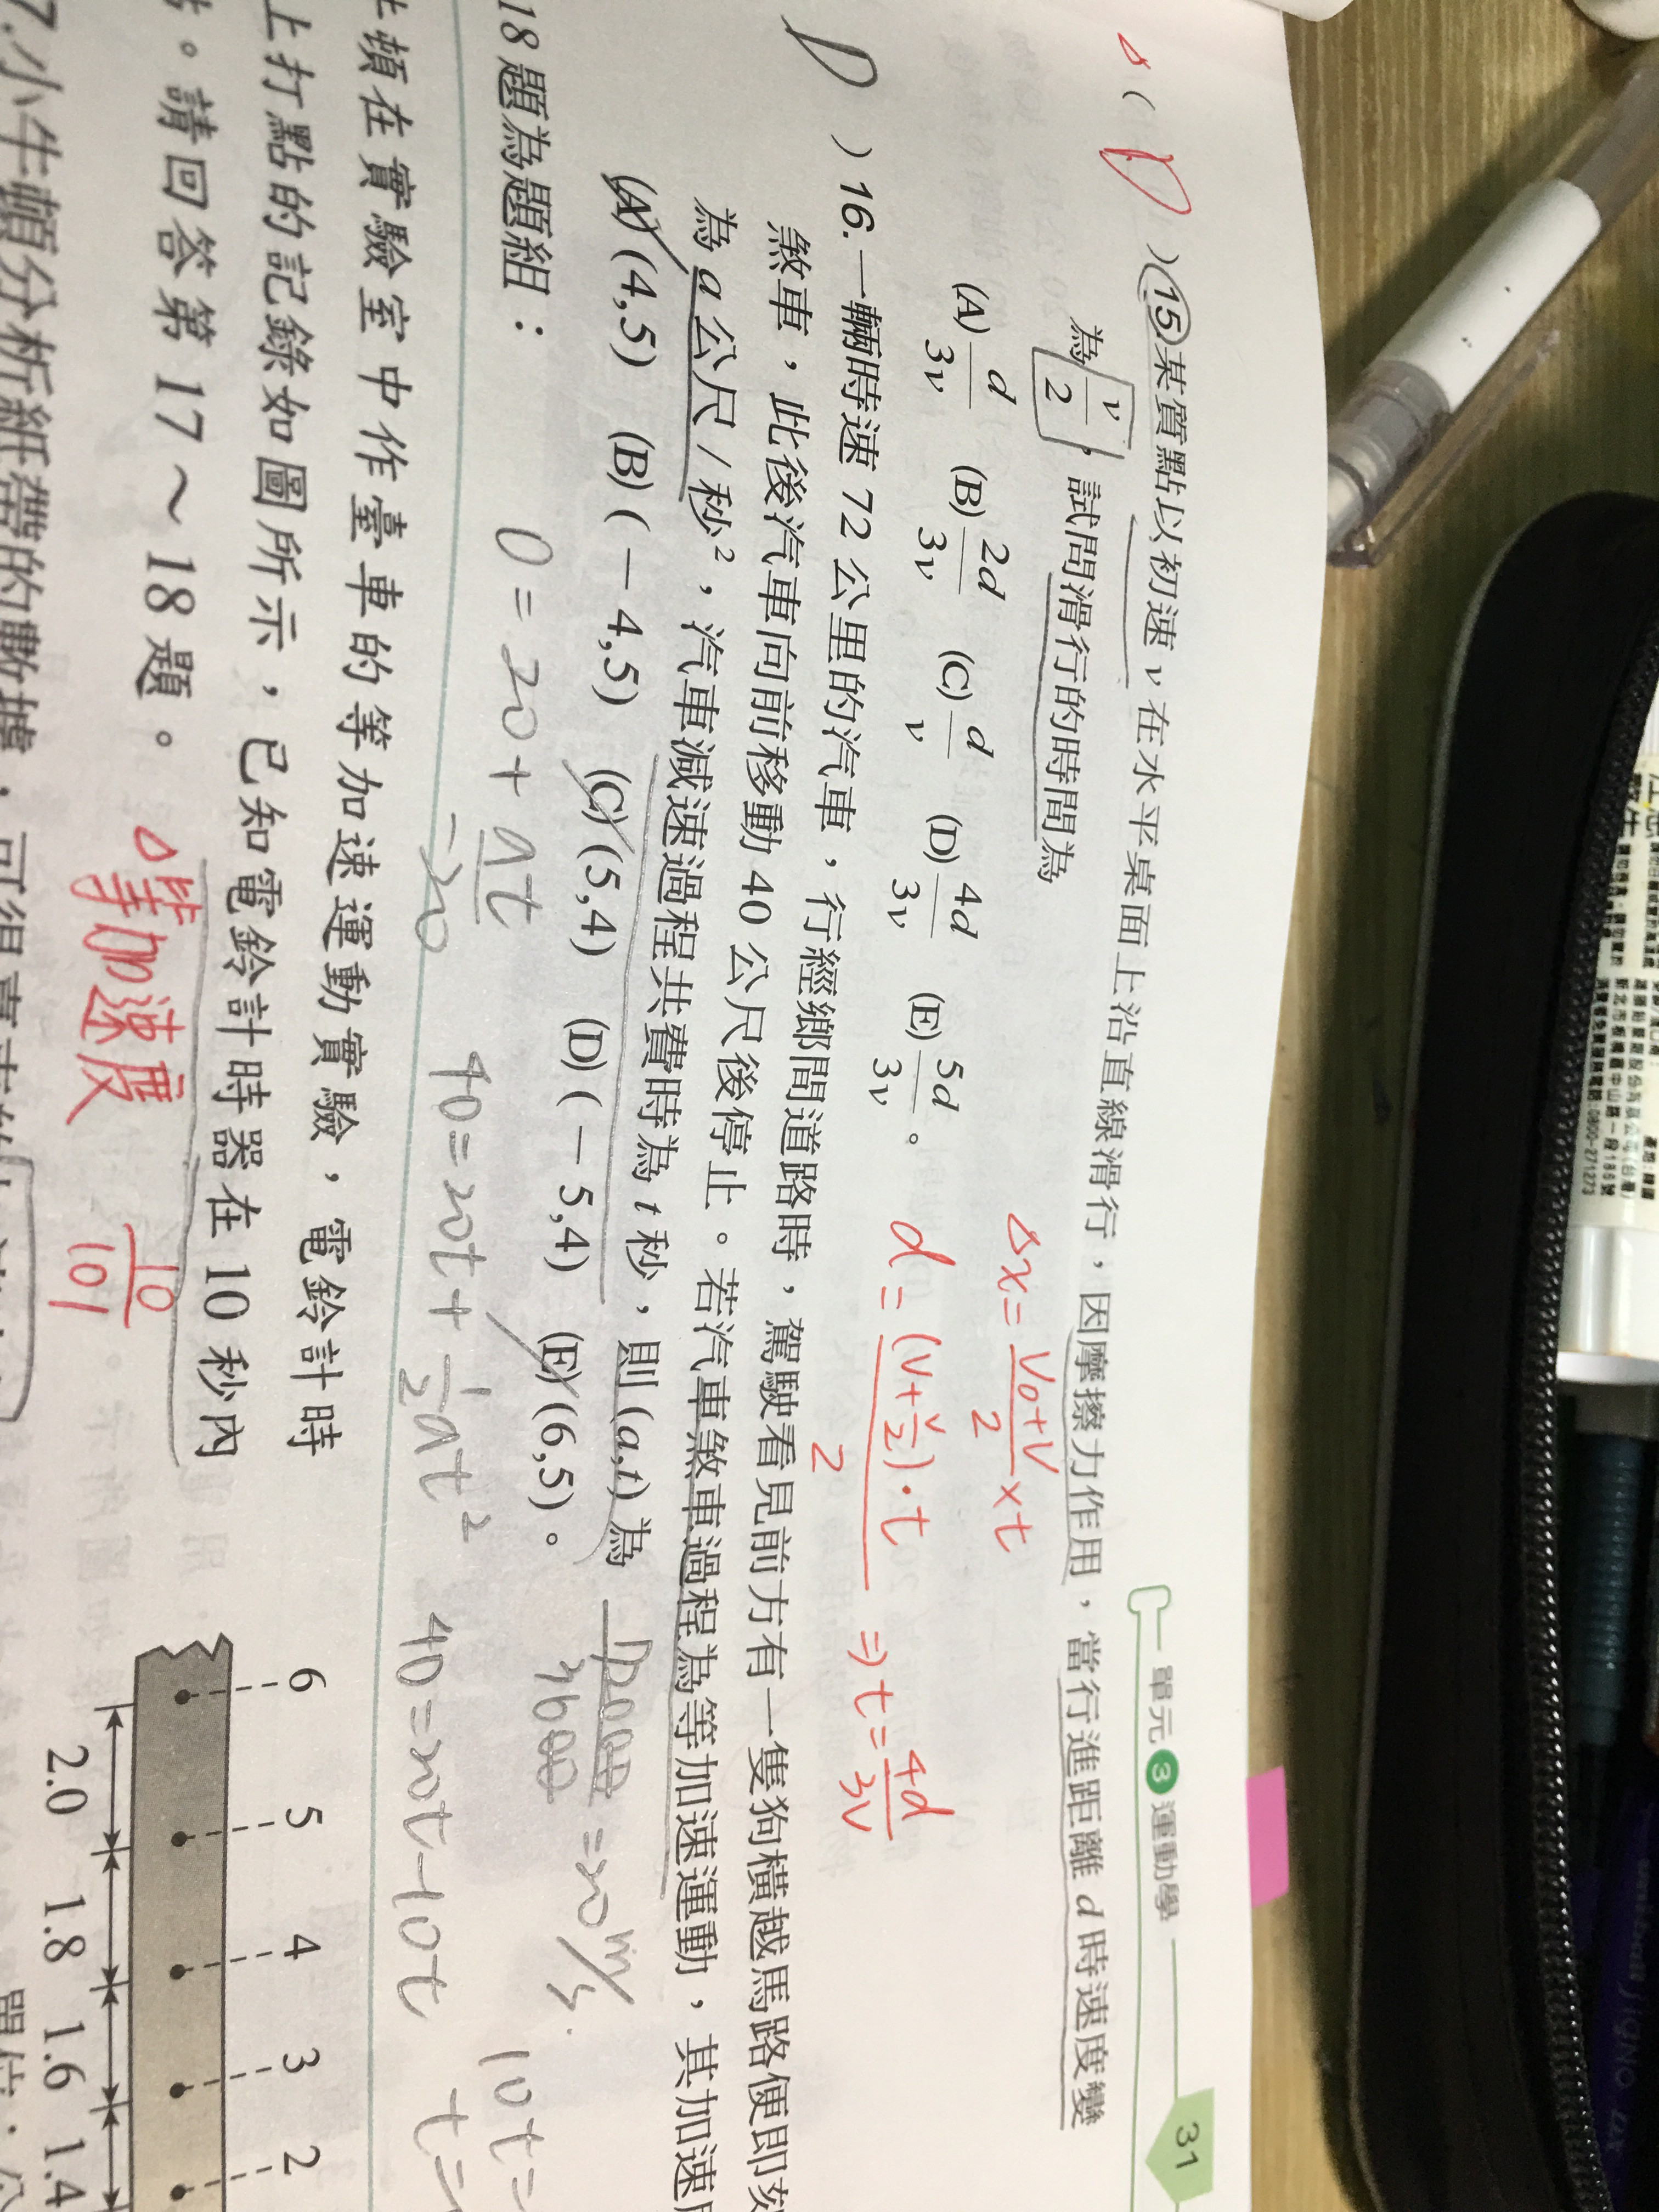 單元3運動學 31
(D)15.某質點以初速v在水平桌面上沿直線滑行，因摩擦力作用，當行進距離d時速度變
為v/2，試問滑行的時間為
(A)d/3v (B)2d/3v (C)d/v (D)4d/3v (E)5d/3v。
Δx=(V0+V)/2×t
d=(V+V/2)·t/2 ⇒t=4d/3V
D)16.一輛時速72公里的汽車，行經鄉間道路時，駕駛看見前方有一隻狗橫越馬路便即刻
煞車，此後汽車向前移動40公尺後停止。若汽車煞車過程為等加速運動，其加速
為a公尺/秒²，汽車減速過程共費時為t秒，則(a,t)為
(A)(4,5) (B)(－4,5) (C)(5,4) (D)(－5,4) (E)(6,5)。
72000/3600=20m/s
0=20+at
-20
40=20t+1/2at²
40=20t-10t
10t=
t=
18題為題組：
頓在實驗室中作臺車的等加速運動實驗，電鈴計時
上打點的記錄如圖所示，已知電鈴計時器在10秒內
。請回答第17～18題。
等加速度
10/101
6 5 4 3 2
2.0 1.8 1.6 1.4
7.小牛頓分析紙帶的數據，可得